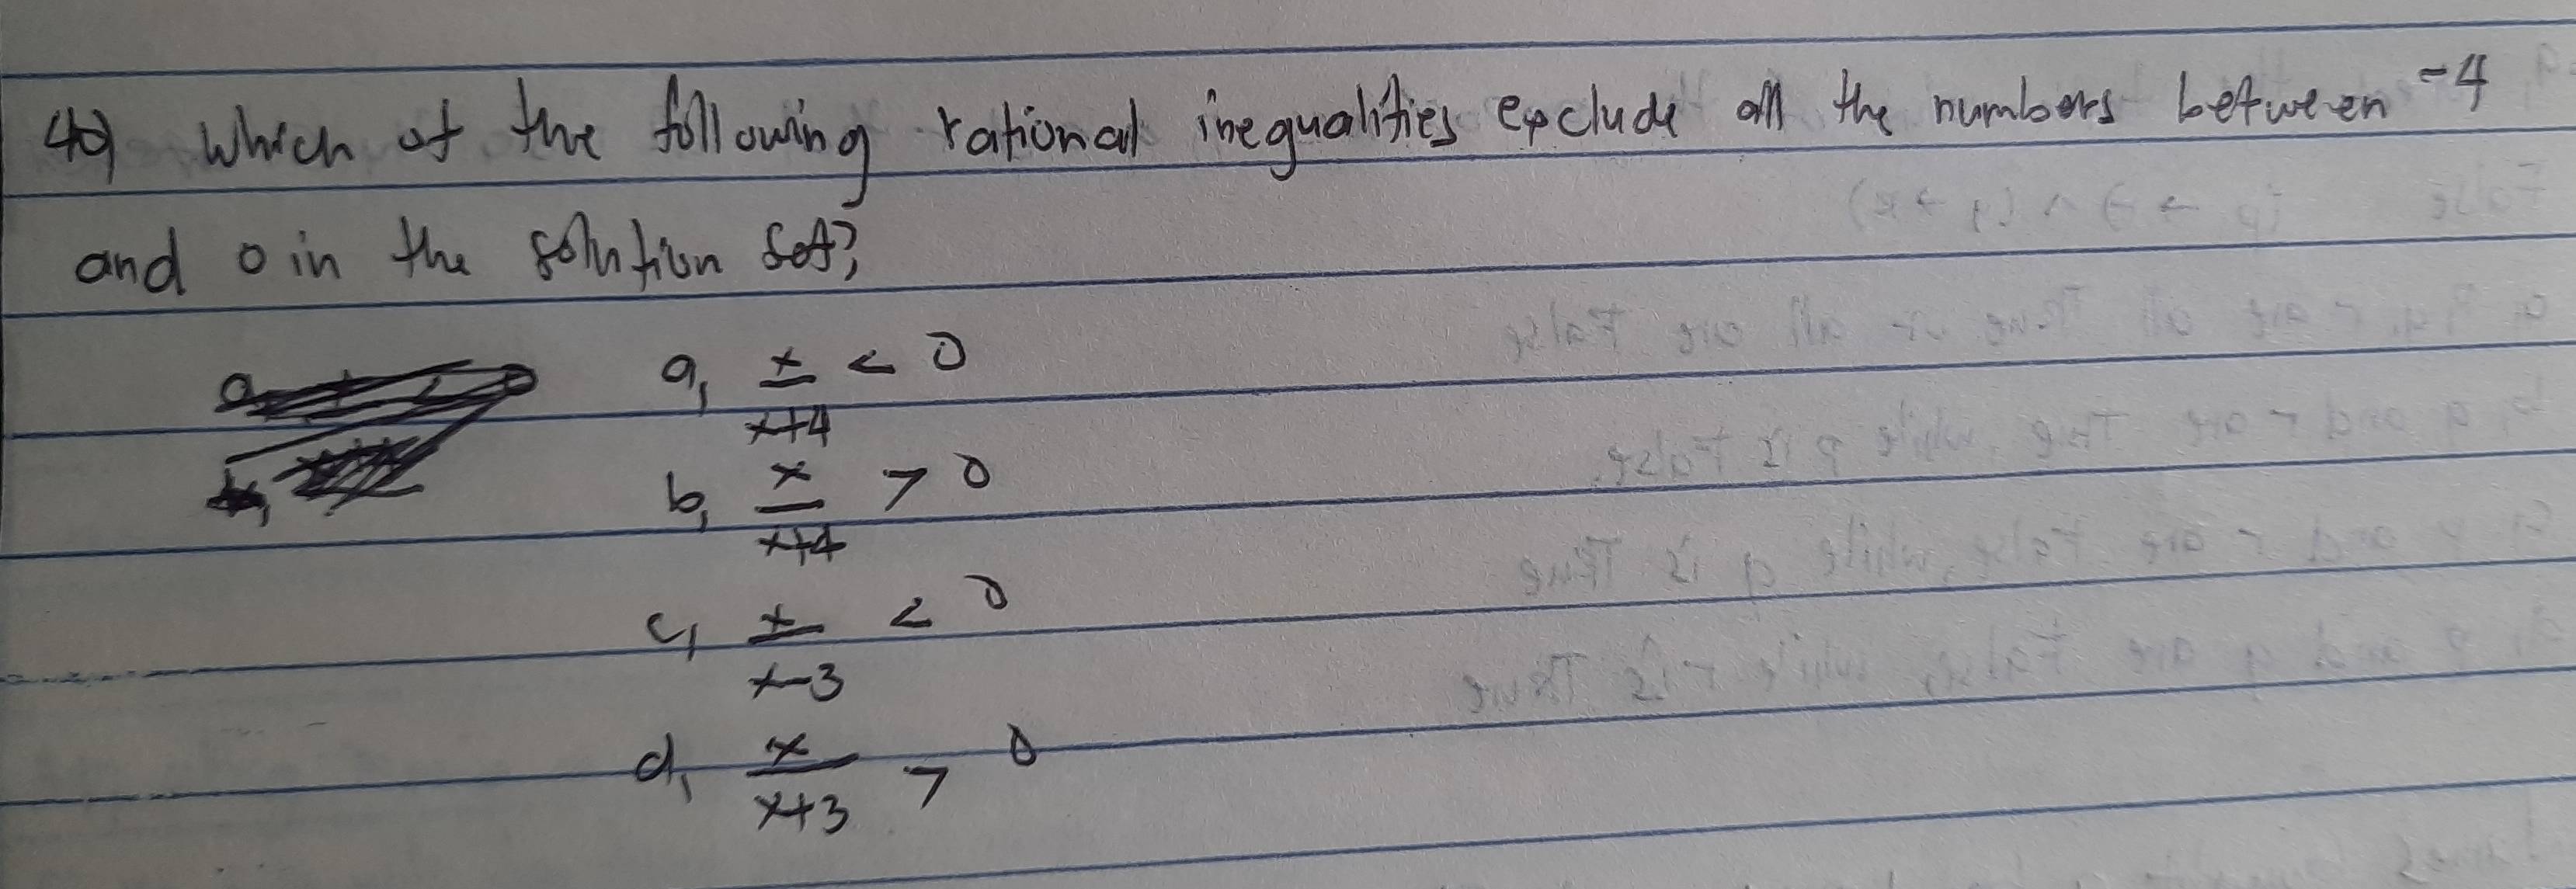 49) Which of the following rational inequalities exclude all the numbers between -4
and 0 in the solution set?
a, x/x+4 < 0
b, x/x+4 > 0
c, x/x-3 < 0
d, x/x+3 > 0